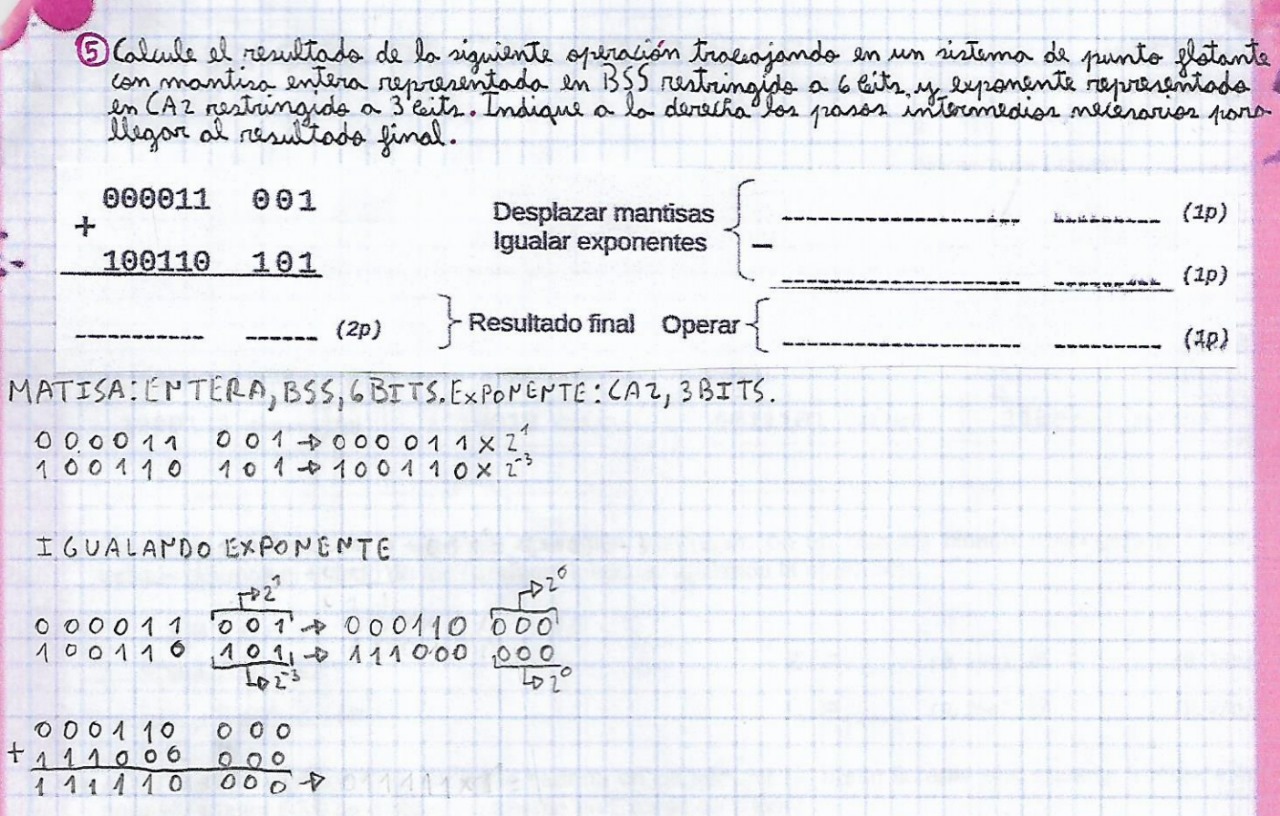 5 Calcule el resultado de la siguiente operación trabajando en un sistema de punto flotante
con mantisa entera representada en BSS restringido a 6 bits, y exponente representado
en CA2 restringido a 3 bits. Indique a la derecha los pasos intermedios necesarios para
llegar al resultado final.
000011 001
+
100110 101
Desplazar mantisas
Igualar exponentes
(1p)
(1p)
(2p) Resultado final Operar (1p)
MATISA: ENTERA, BSS, 6 BITS. EXPONENTE: CA2, 3 BITS.
000011 001 → 000011 x 2^1
100110 101 → 100110 x 2^-3
IGUALANDO EXPONENTE
2^1 2^0
000011 001 → 000110 000
100110 101 → 111000 000
2^-3 2^0
000110 000
+ 111000 000
111110 000 →